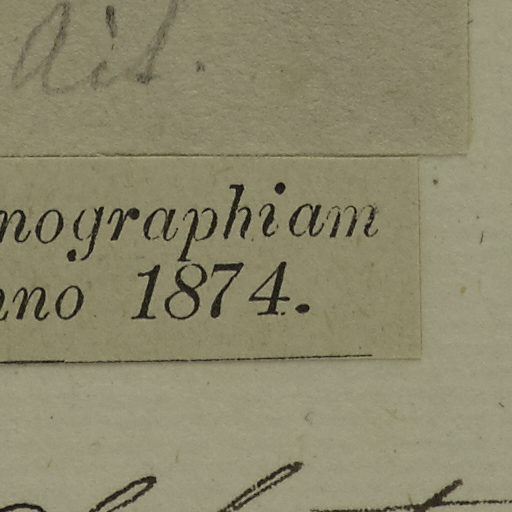 Ait.
nographiam
nno 1874.